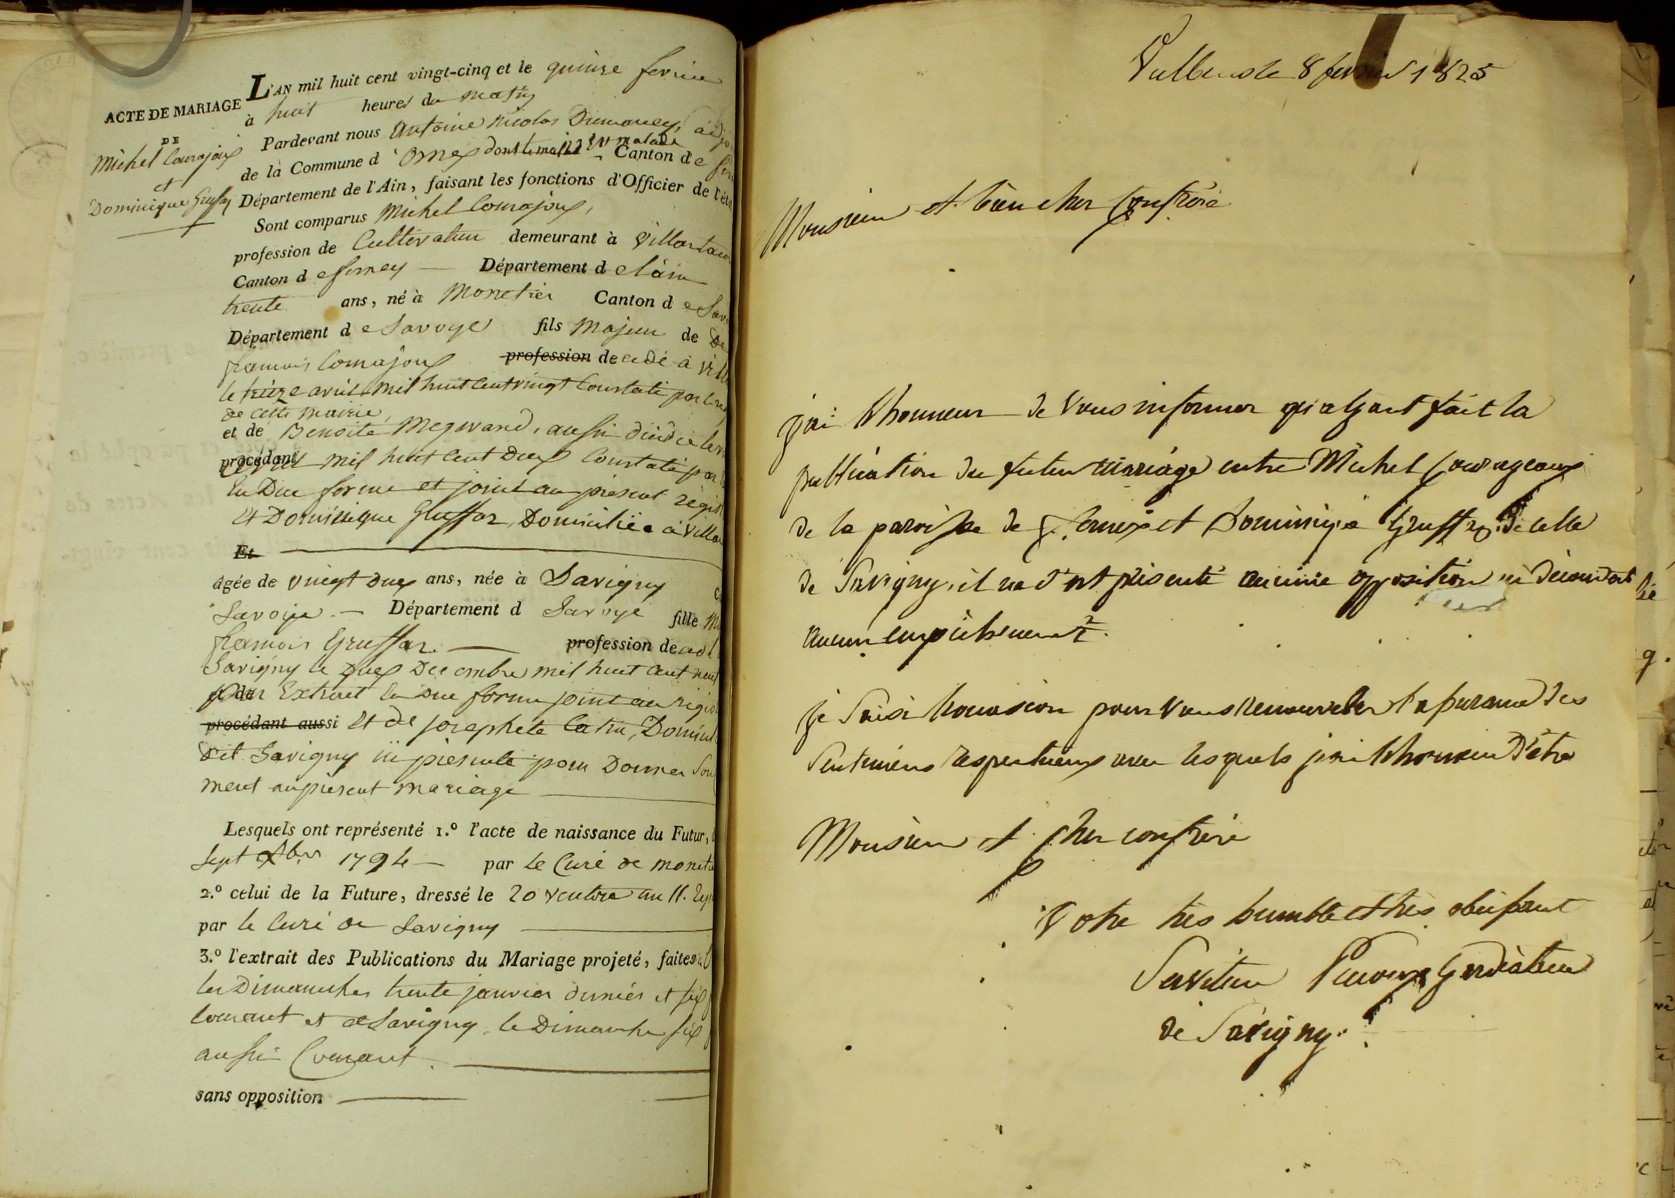 L'AN mil huit cent vingt-cinq et le quinze fevrier
à huit heures du matin
ACTE DE MARIAGE
DE
Michel Courajoux
et
Dominique Gruffaz
Pardevant nous Antoine Nicolas
de la Commune d'Ornex dont le maire est malade Canton de
Département de l'Ain, faisant les fonctions d'Officier de l'éta
Sont comparus Michel Courajoux,
profession de Cultivateur demeurant à Villard
Canton de ferney — Département de l'ain
trente ans, né à Monetier Canton de
Département de Savoye fils Majeur de
françois Courajoux profession decedé à
le treize avril mil huit cent vingt Constaté par
de cette mairie,
et de Benoite Megevand, aussi
procédant mil huit cent Deux Constaté par
En Due forme et joint au présent
Et Dominique Gruffaz, Domiciliée à
Et
agée de vingt Deux ans, née à Savigny
Savoye — Département d Savoye fille
françois Gruffaz — profession de
Savigny le Deux Decembre mil huit cent
et de Extrait En Due forme joint au
procédant aussi Et de Josephte
Dit Savigny ici présente pour Donner Son
ment au présent mariage —
Lesquels ont représenté 1.º l'acte de naissance du Futur,
Sept 1794 — par Le Curé de
2.º celui de la Future, dressé le 20 ventose an 11.
par le Curé de Savigny —
3.º l'extrait des Publications du Mariage projeté, faites
les Dimanches trente janvier dernier et six
Courant et a Savigny le Dimanche six
aussi Courant. —
sans opposition —
8 fevrier 1825
Monsieur et bien cher confrère
j'ai l'honneur de vous informer qu'ayant fait la
publication du futur mariage entre Michel Courageoux
de la paroisse de et Dominique Gruffaz de celle
de Savigny, il ne s'est présenté aucune opposition ni découvert
aucun empêchement.
je saisis l'occasion pour vous renouveller l'assurance des
sentimens respectueux avec lesquels j'ai l'honneur d'être
Monsieur et cher confrère
Votre très humble et très obéissant
Serviteur
de Savigny.